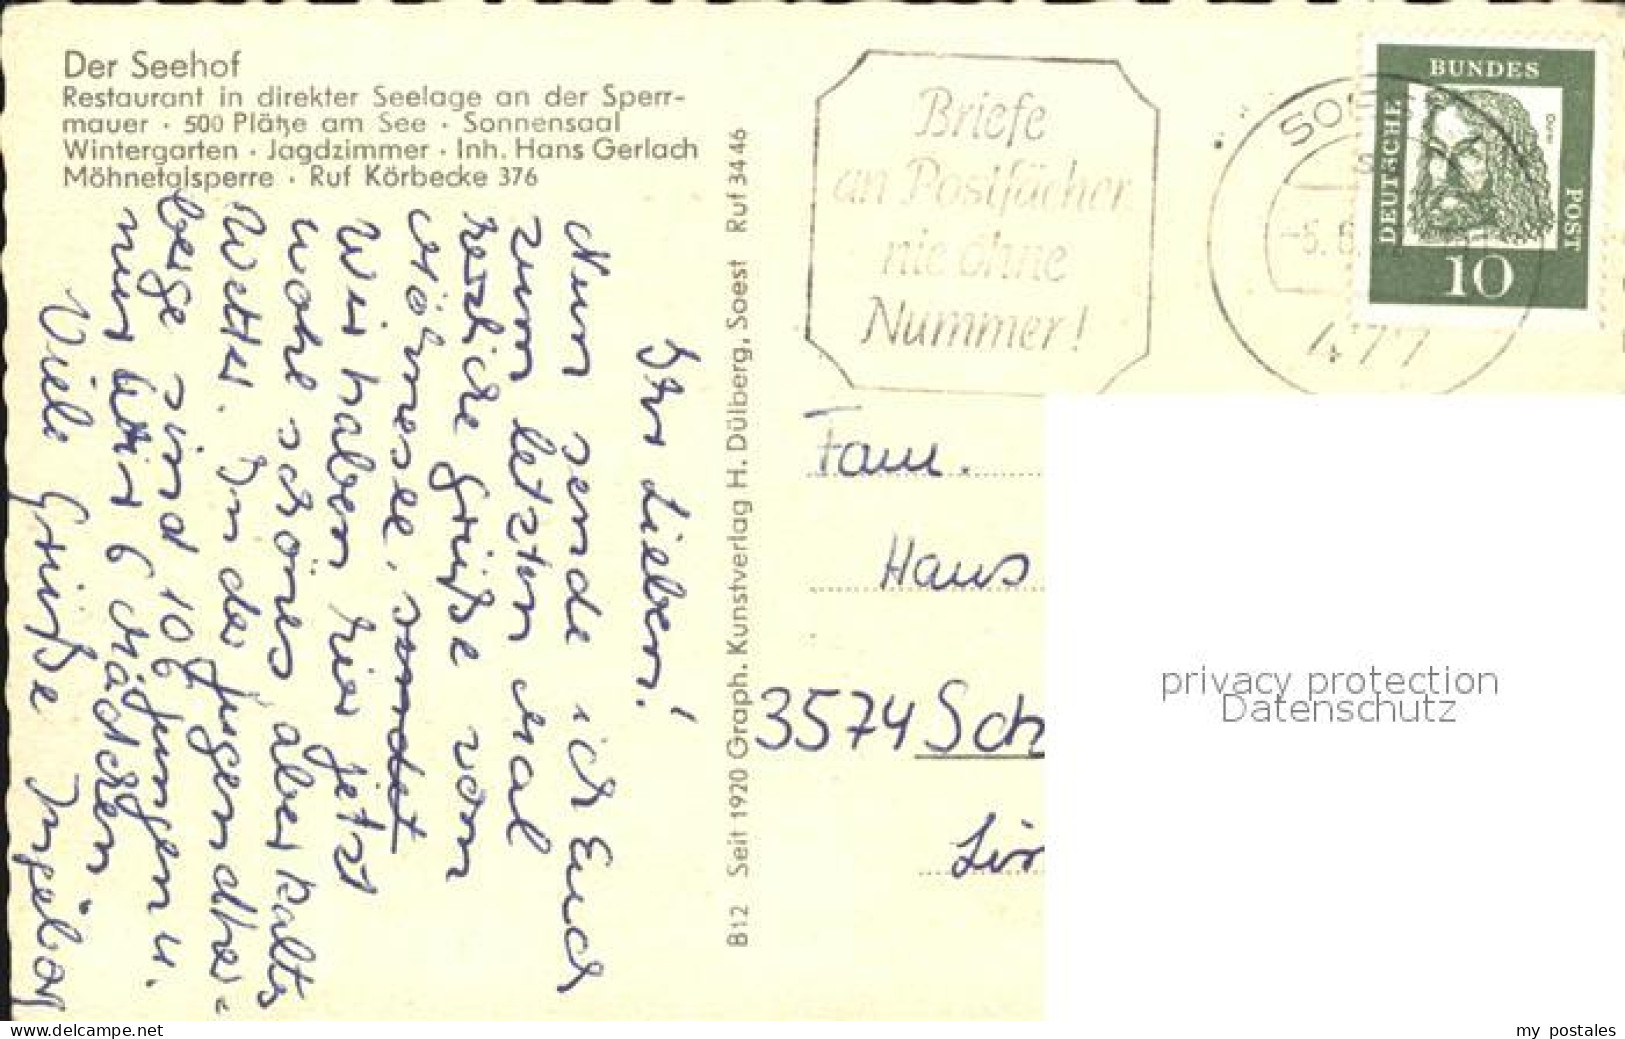 Der Seehof
Restaurant in direkter Seelage an der Sperr-
mauer · 500 Plätze am See · Sonnensaal
Wintergarten · Jagdzimmer · Inh. Hans Gerlach
Möhnetalsperre · Ruf Körbecke 376
Ihr Lieben!
Nun sende ich Euch
zum letzten Mal
herzliche Grüße vom
Möhnesee.
Wir haben hier jetzt
wohl schönes, aber kaltes
Wetter. In der Jugendher-
berge sind 106 Jungen u.
nur wir 6 Mädchen.
Viele Grüße Ingeborg
B12 Seit 1920 Graph. Kunstverlag H. Dülberg, Soest Ruf 3446
Briefe
an Postfächer
nie ohne
Nummer!
477
BUNDES
DEUTSCHE
POST
Dürer
10
Fam.
Hans
3574 Sch
privacy protection
Datenschutz
www.delcampe.net
my postales